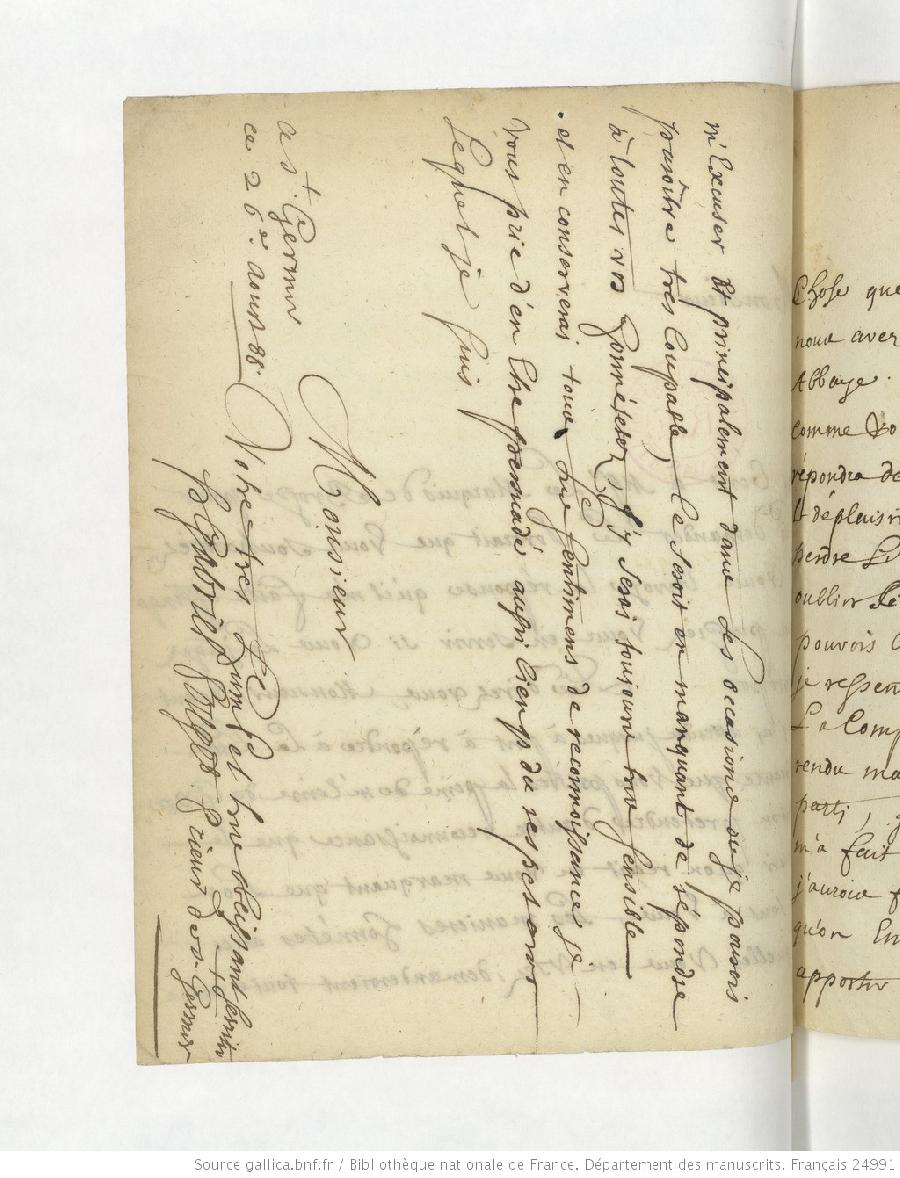 m'Excuser Et principalement dans des occasions ou je pourois
paroître trés Coupable, Ce seroit en manquant de répondre
à toutes vos honnétetez, J'y serai toujours tres sensible
et en conserverai tous mes sentimens de reconnoissance je
vous prie d'en Etre persuadé aussi bien q. du respet avec
Lequel je suis
Monsieur
Votre tres humble et tres obeissant servitr
prieur de st Germer
a st. Germer
ce 26e. aoust 88.
Chose que
nous avez
Abbaye.
comme vo
répondre de
Et déplaisir
perdre
oublier
pouvois
je ressen
La Comp
rendu ma
parti,
m'a fait
j'aurois
qu'on
apporter
Source gallica.bnf.fr / Bibliothèque nationale de France. Département des manuscrits. Français 24991